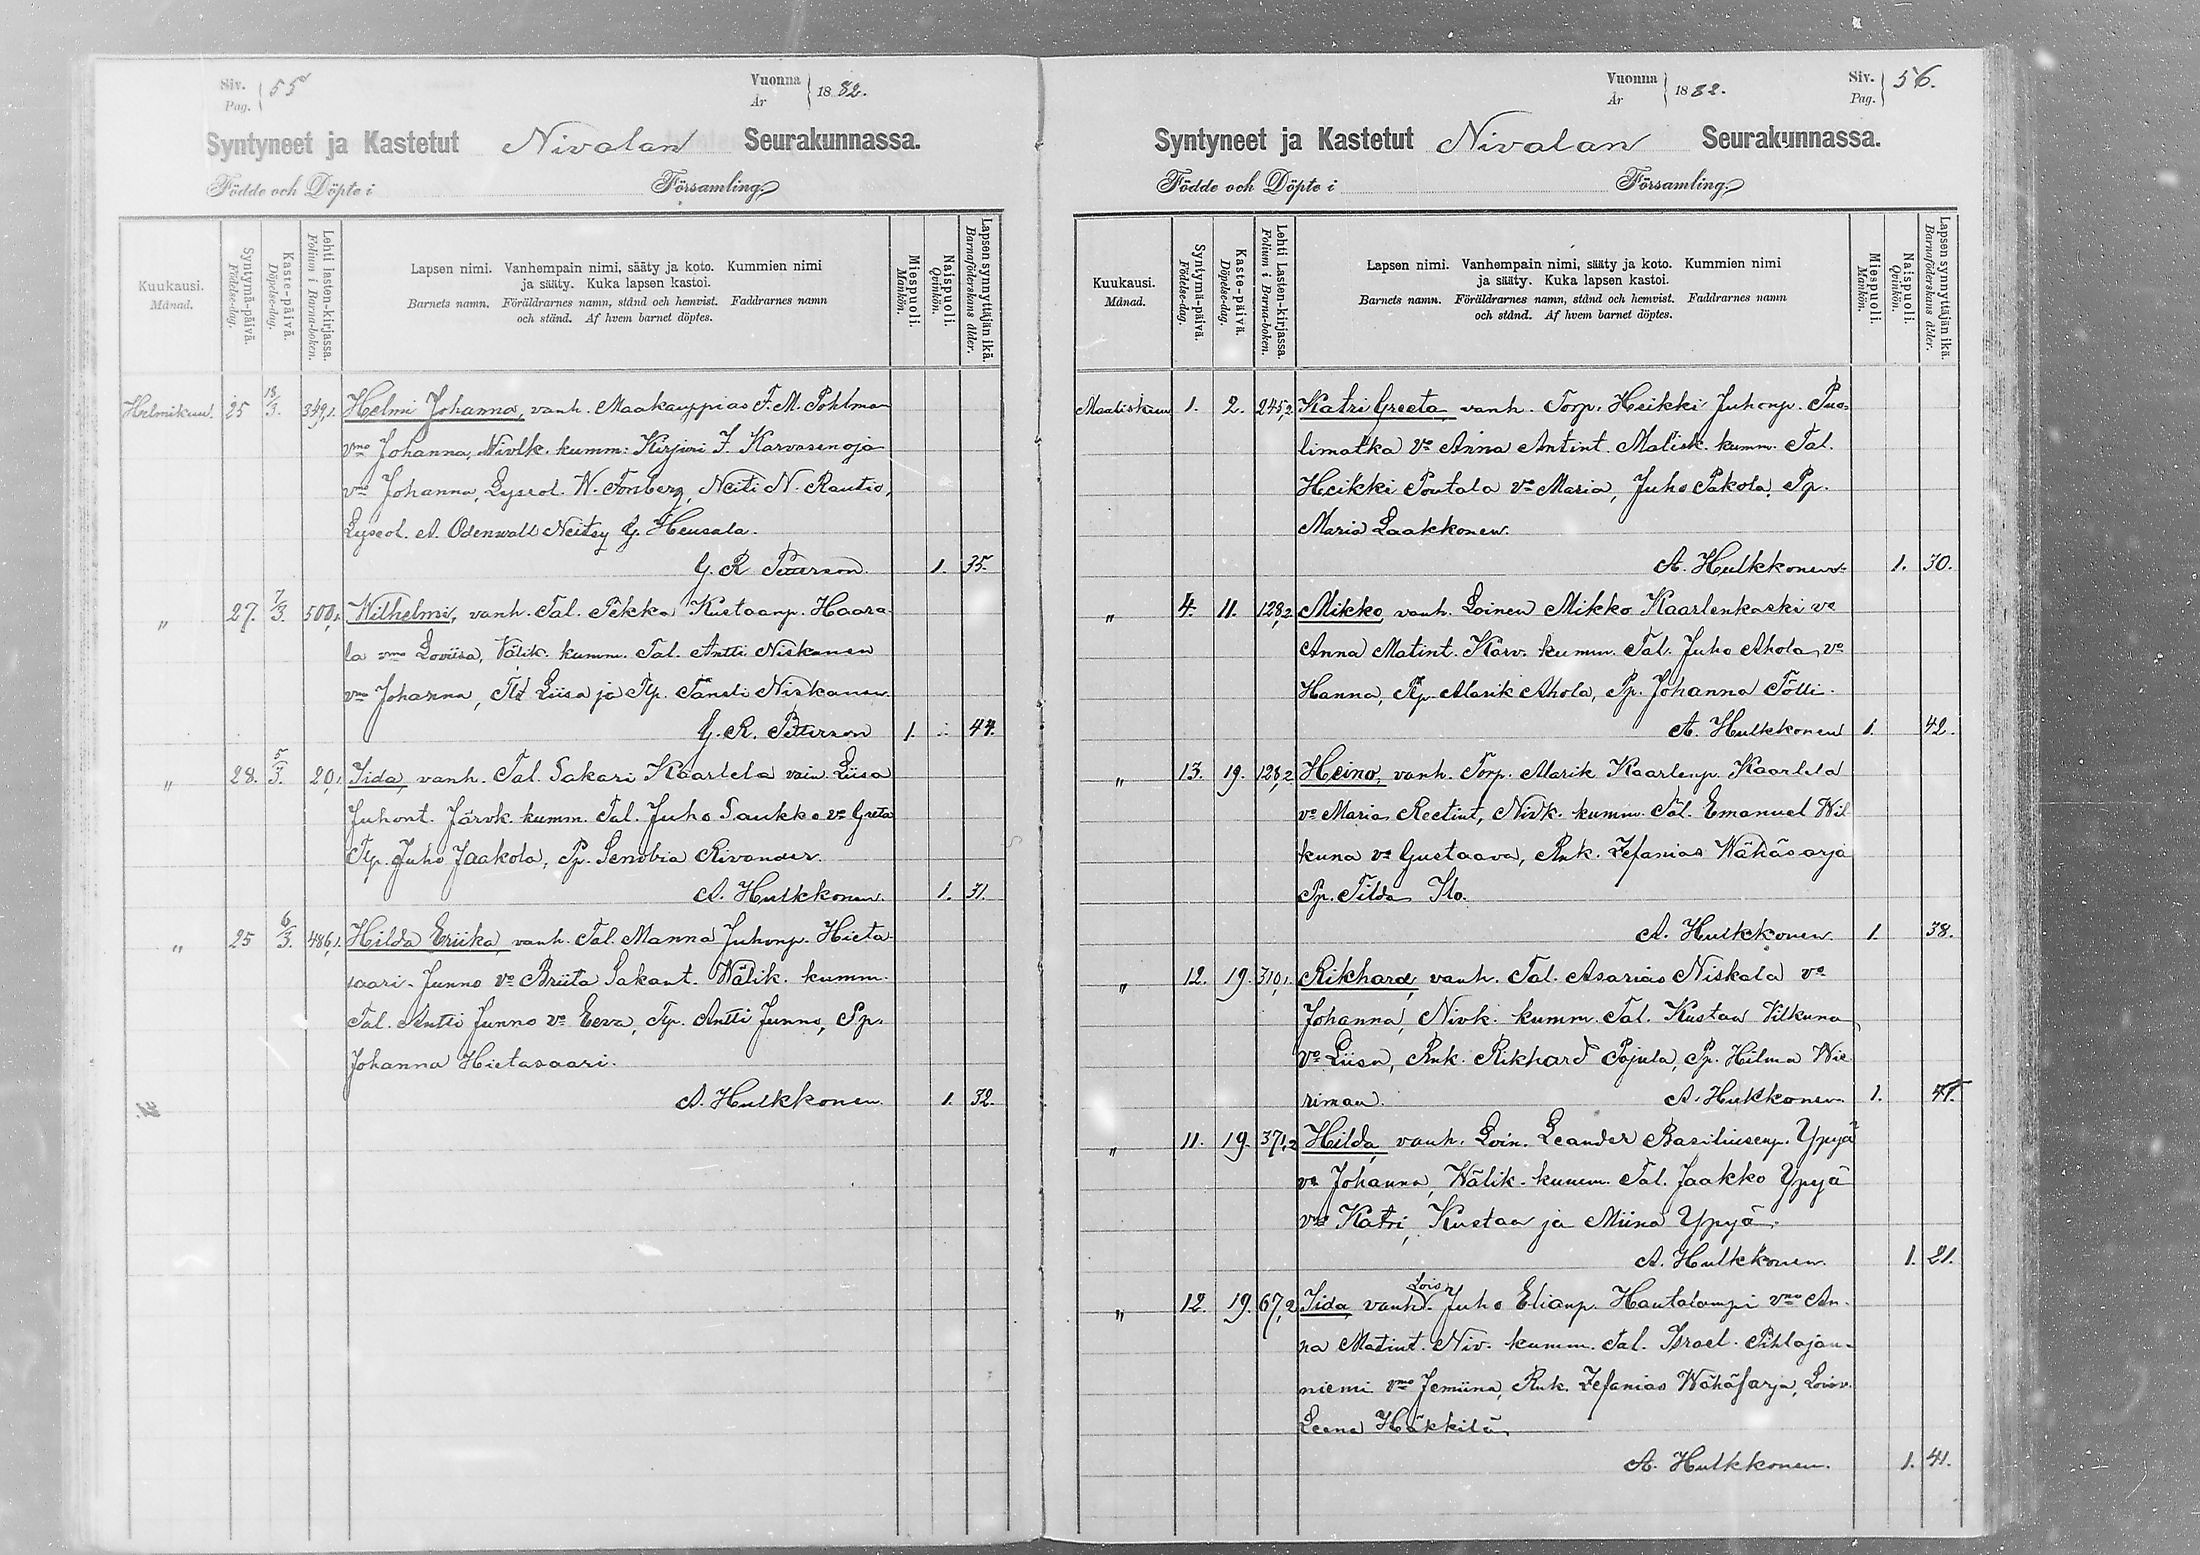 Siv. Pag. 55 Vuonna År 1882.
Syntyneet ja Kastetut Nivalan Seurakunnassa.
Födde och Döpte i Församling.
Kuukausi. Månad.
Syntymä-päivä. Födelse-dag.
Kaste-päivä. Döpelse-dag.
Lehti lasten-kirjassa. Folium i Barna-boken.
Lapsen nimi. Vanhempain nimi, sääty ja koto. Kummien nimi
ja sääty. Kuka lapsen kastoi.
Barnets namn. Föräldrarnes namn, stånd och hemvist. Faddrarnes namn
och stånd. Af hvem barnet döptes.
Miespuoli. Mankön.
Naispuoli. Qvinkön.
Lapsen synnyttäjän ikä. Barnaföderskans ålder.
Helmikuu. 25 18/3. 349,1. Helmi Johanna, vanh. Maakauppias F. M. Pohlman
vmo Johanna, Nivlk. kumm: Kirjuri J. Karvosenoja
vmo Johanna, Lyseol. W. Forsberg, Neiti N. Rautio,
Lyseol. A. Odenwall Neitsy G. Heusala.
G. R. Petterson. 1. 35.
" 27. 7/3. 500,1. Wilhelmi, vanh. Tal. Pekka Kustaanp. Haara-
la vmo Loviisa, Välik. kumm. Tal. Antti Niskanen
vmo Johanna, Tlt Liisa ja Tlp. Taneli Niskanen.
G. R. Petterson 1. 44.
" 28. 5/3. 20,1 Iida, vanh. Tal. Sakari Kaarlela vaim. Liisa
Juhont. Järvk. kumm. Tal. Juho Saukko vo Greta
Tlp. Juho Jaakola, Pp. Senobia Rivander.
A. Hulkkonen. 1. 31.
" 25 6/3. 486,1. Hilda Eriika, vanh. Tal. Manna Juhonp. Hieta-
saari-Junno vo Briita Sakant. Wälik. kumm.
Tal. Antti Junno vo Eeva, Tp. Antti Junno, Pp.
Johanna Hietasaari.
A. Hulkkonen. 1. 32.
Vuonna År 1882. Siv. Pag. 56.
Syntyneet ja Kastetut Nivalan Seurakunnassa.
Födde och Döpte i Församling.
Kuukausi. Månad.
Syntymä-päivä. Födelse-dag.
Kaste-päivä. Döpelse-dag.
Lehti Lasten-kirjassa. Folium i Barna-boken.
Lapsen nimi. Vanhempain nimi, sääty ja koto. Kummien nimi
ja sääty. Kuka lapsen kastoi.
Barnets namn. Föräldrarnes namn, stånd och hemvist. Faddrarnes namn
och stånd. Af hvem barnet döptes.
Miespuoli. Mankön.
Naispuoli. Qvinkön.
Lapsen synnyttäjän ikä. Barnaföderskans ålder.
Maaliskuu 1. 2. 245,2 Katri Greeta, vanh. Torp. Heikki Juhonp. Puo-
limatka vo Anna Antint. Malisk. kumm. Tal.
Heikki Poutala vo Maria, Juho Pakola, Pp.
Maria Laakkonen.
A. Hulkkonen. 1. 30.
" 4. 11. 128,2 Mikko, vanh. Loinen Mikko Kaarlenkoski vo
Anna Matint. Karv. kumm. Tal. Juho Ahola, vo
Hanna, Tlp. Alarik Ahola, Pp. Johanna Tölli.
A. Hulkkonen 1. 42.
" 13. 19. 128,2 Heino, vanh. Torp. Alarik Kaarlenp. Kaarlela
vo Maria Reetint, Nivk. kumm. Tal. Emanuel Wil-
kuna vo Gustaava, Rnk. Zefanias Wähäsarja
Pp. Tilda Ilo.
A. Hulkkonen. 1. 38.
" 12. 19. 310,1. Rikhard, vanh. Tal. Asarias Niskala vo
Johanna, Nivk. kumm. Tal. Kustaa Vilkuna
vo Liisa, Rnk. Rikhard Pajula, Pp. Hilma Wie-
riman. A. Hulkkonen. 1.
" 11. 19. 371,2 Hilda, vanh. Loin. Leander Basiliusenp. Ypyä
vo Johanna, Wälik. kumm. Tal. Jaakko Ypyä
vmo Katri, Kustaa ja Miina Ypyä.
A. Hulkkonen. 1. 21.
" 12. 19. 67,2 Iida, vanh. Lois. Juho Elianp. Hautalampi vmo An-
na Matint. Niv. kumm. Tal. Israel Pihlajan-
niemi vmo Jemiina, Rnk. Zefanias Wähäsarja, Loisv.
Leena Häkkilä,
A. Hulkkonen. 1. 41.